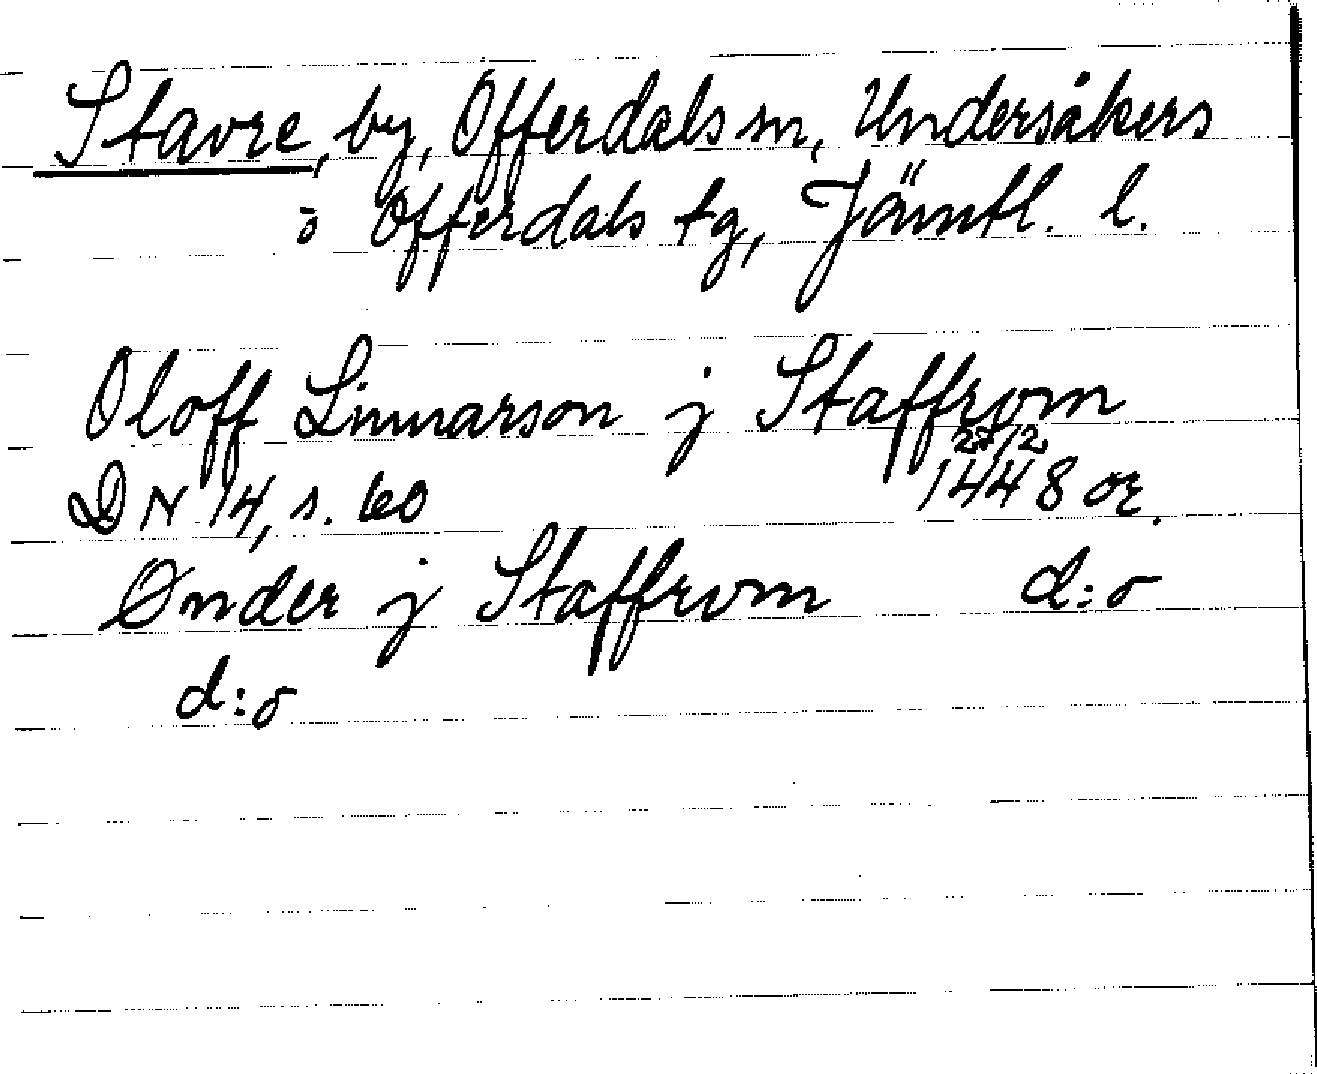 Stavre, by, Offerdals sn, Undersåkers
o Offerdals tg, Jämtl. l.
Oloff Linnarson j Staffrom
27/2
DN 14, s. 60 1448 or.
Ønder j Staffrom d:o
d:o